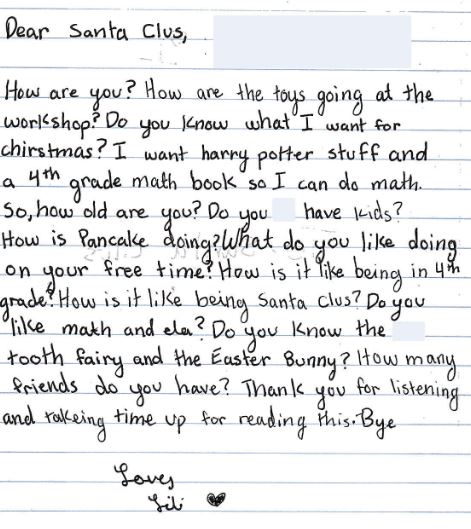 Dear Santa Clus,
How are you? How are the toys going at the
workshop? Do you know what I want for
chirstmas? I want harry potter stuff and
a 4th grade math book so I can do math.
So, how old are you? Do you have kids?
How is Pancake doing? What do you like doing
on your free time? How is it like being in 4th
grade? How is it like being Santa Clus? Do you
like math and ela? Do you know the
tooth fairy and the Easter Bunny? How many
friends do you have? Thank you for listening
and takeing time up for reading this. Bye
Loves
Lili